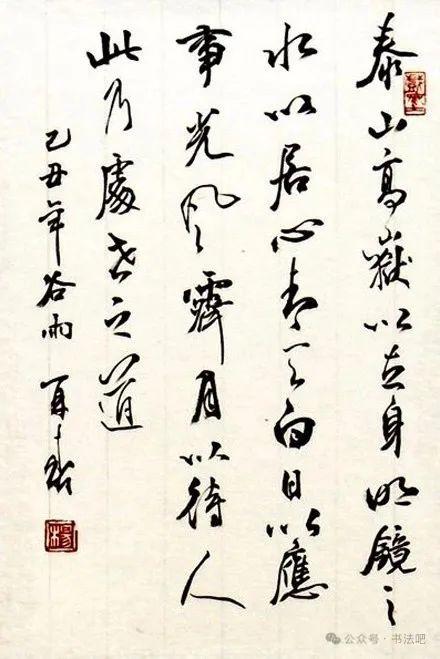 泰山高嶽以立身明鏡止
水以居心青天白日以應
事光風霽月以待人
此乃處世之道
己丑年谷雨
楊
公众号·书法吧